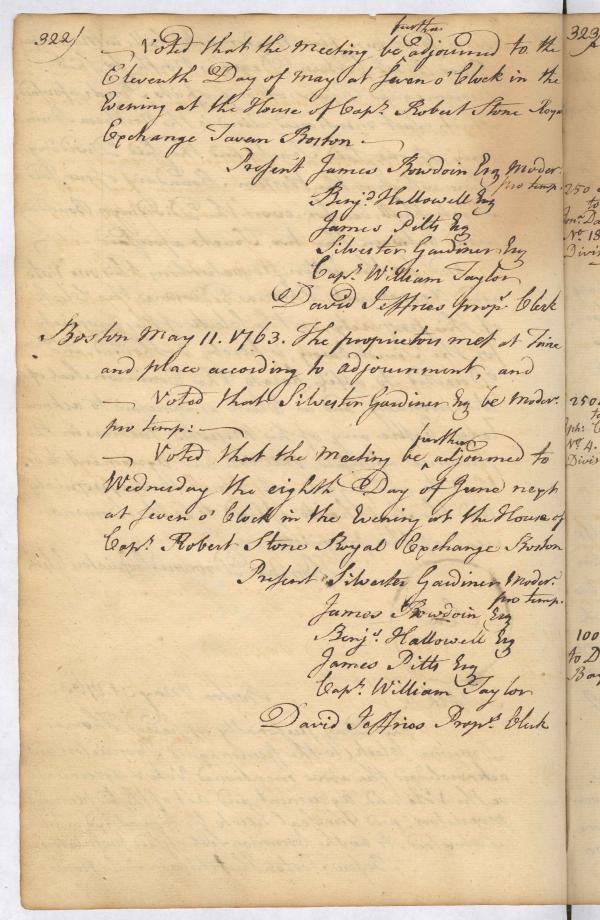 322/
— Voted that the meeting be further adjourned to the
Eleventh Day of May at Seven o'Clock in the
Evening at the House of Capt. Robert Stone Royal
Exchange Tavern Boston —
Present James Bowdoin Esq Moder.
pro temp.
Benj.d Hallowell Esq
James Pitts Esq
Silvester Gardiner Esq
Capt. William Taylor
David Jeffries prop.s Clerk
Boston May 11. 1763. The proprietors met at Time
and place according to adjournment, and
— Voted that Silvester Gardiner Esq be Moder.
pro temp: —
— Voted that the meeting be further adjourned to
Wednesday the eighth Day of June next
at Seven o'Clock in the Evening at the House of
Capt. Robert Stone Royal Exchange Boston
Present Silvester Gardiner Moder.
pro temp.
James Bowdoin Esq
Benj.d Hallowell Esq
James Pitts Esq
Capt. William Taylor
David Jeffries Prop.s Clerk
323
250
to
No. 18
Divis
250
to
No. 4.
Divis
100
to D
Bay